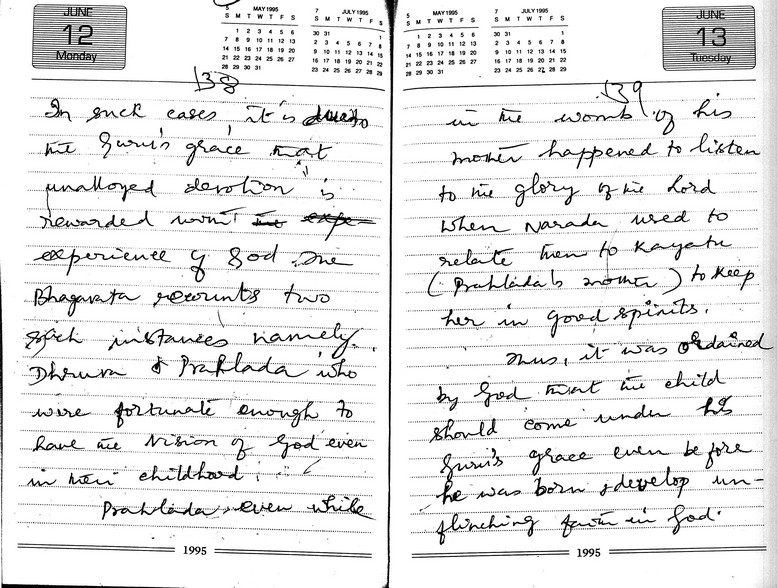 JUNE
12
Monday
5 MAY 1995
S M T W T F S
1 2 3 4 5 6
7 8 9 10 11 12 13
14 15 16 17 18 19 20
21 22 23 24 25 26 27
28 29 30 31
7 JULY 1995
S M T W T F S
30 31 1
2 3 4 5 6 7 8
9 10 11 12 13 14 15
16 17 18 19 20 21 22
23 24 25 26 27 28 29
138
In such cases, it is due to
the Guru's grace that
unalloyed devotion is
rewarded with the expe-
experience of God. The
Bhagavata recounts two
such instances namely.
Dhruva & Prahlada who
were fortunate enough to
have the Vision of God even
in their childhood.
Prahlada, even while
1995
5 MAY 1995
S M T W T F S
1 2 3 4 5 6
7 8 9 10 11 12 13
14 15 16 17 18 19 20
21 22 23 24 25 26 27
28 29 30 31
7 JULY 1995
S M T W T F S
30 31 1
2 3 4 5 6 7 8
9 10 11 12 13 14 15
16 17 18 19 20 21 22
23 24 25 26 27 28 29
JUNE
13
Tuesday
139
in the womb of his
mother happened to listen
to the glory of the Lord
when Narada used to
relate them to Kayatu
(Prahlada's mother) to keep
her in good spirits.
Thus, it was ordained
by God that the child
should come under his
Guru's grace even before
he was born & develop un-
flinching faith in God.
1995